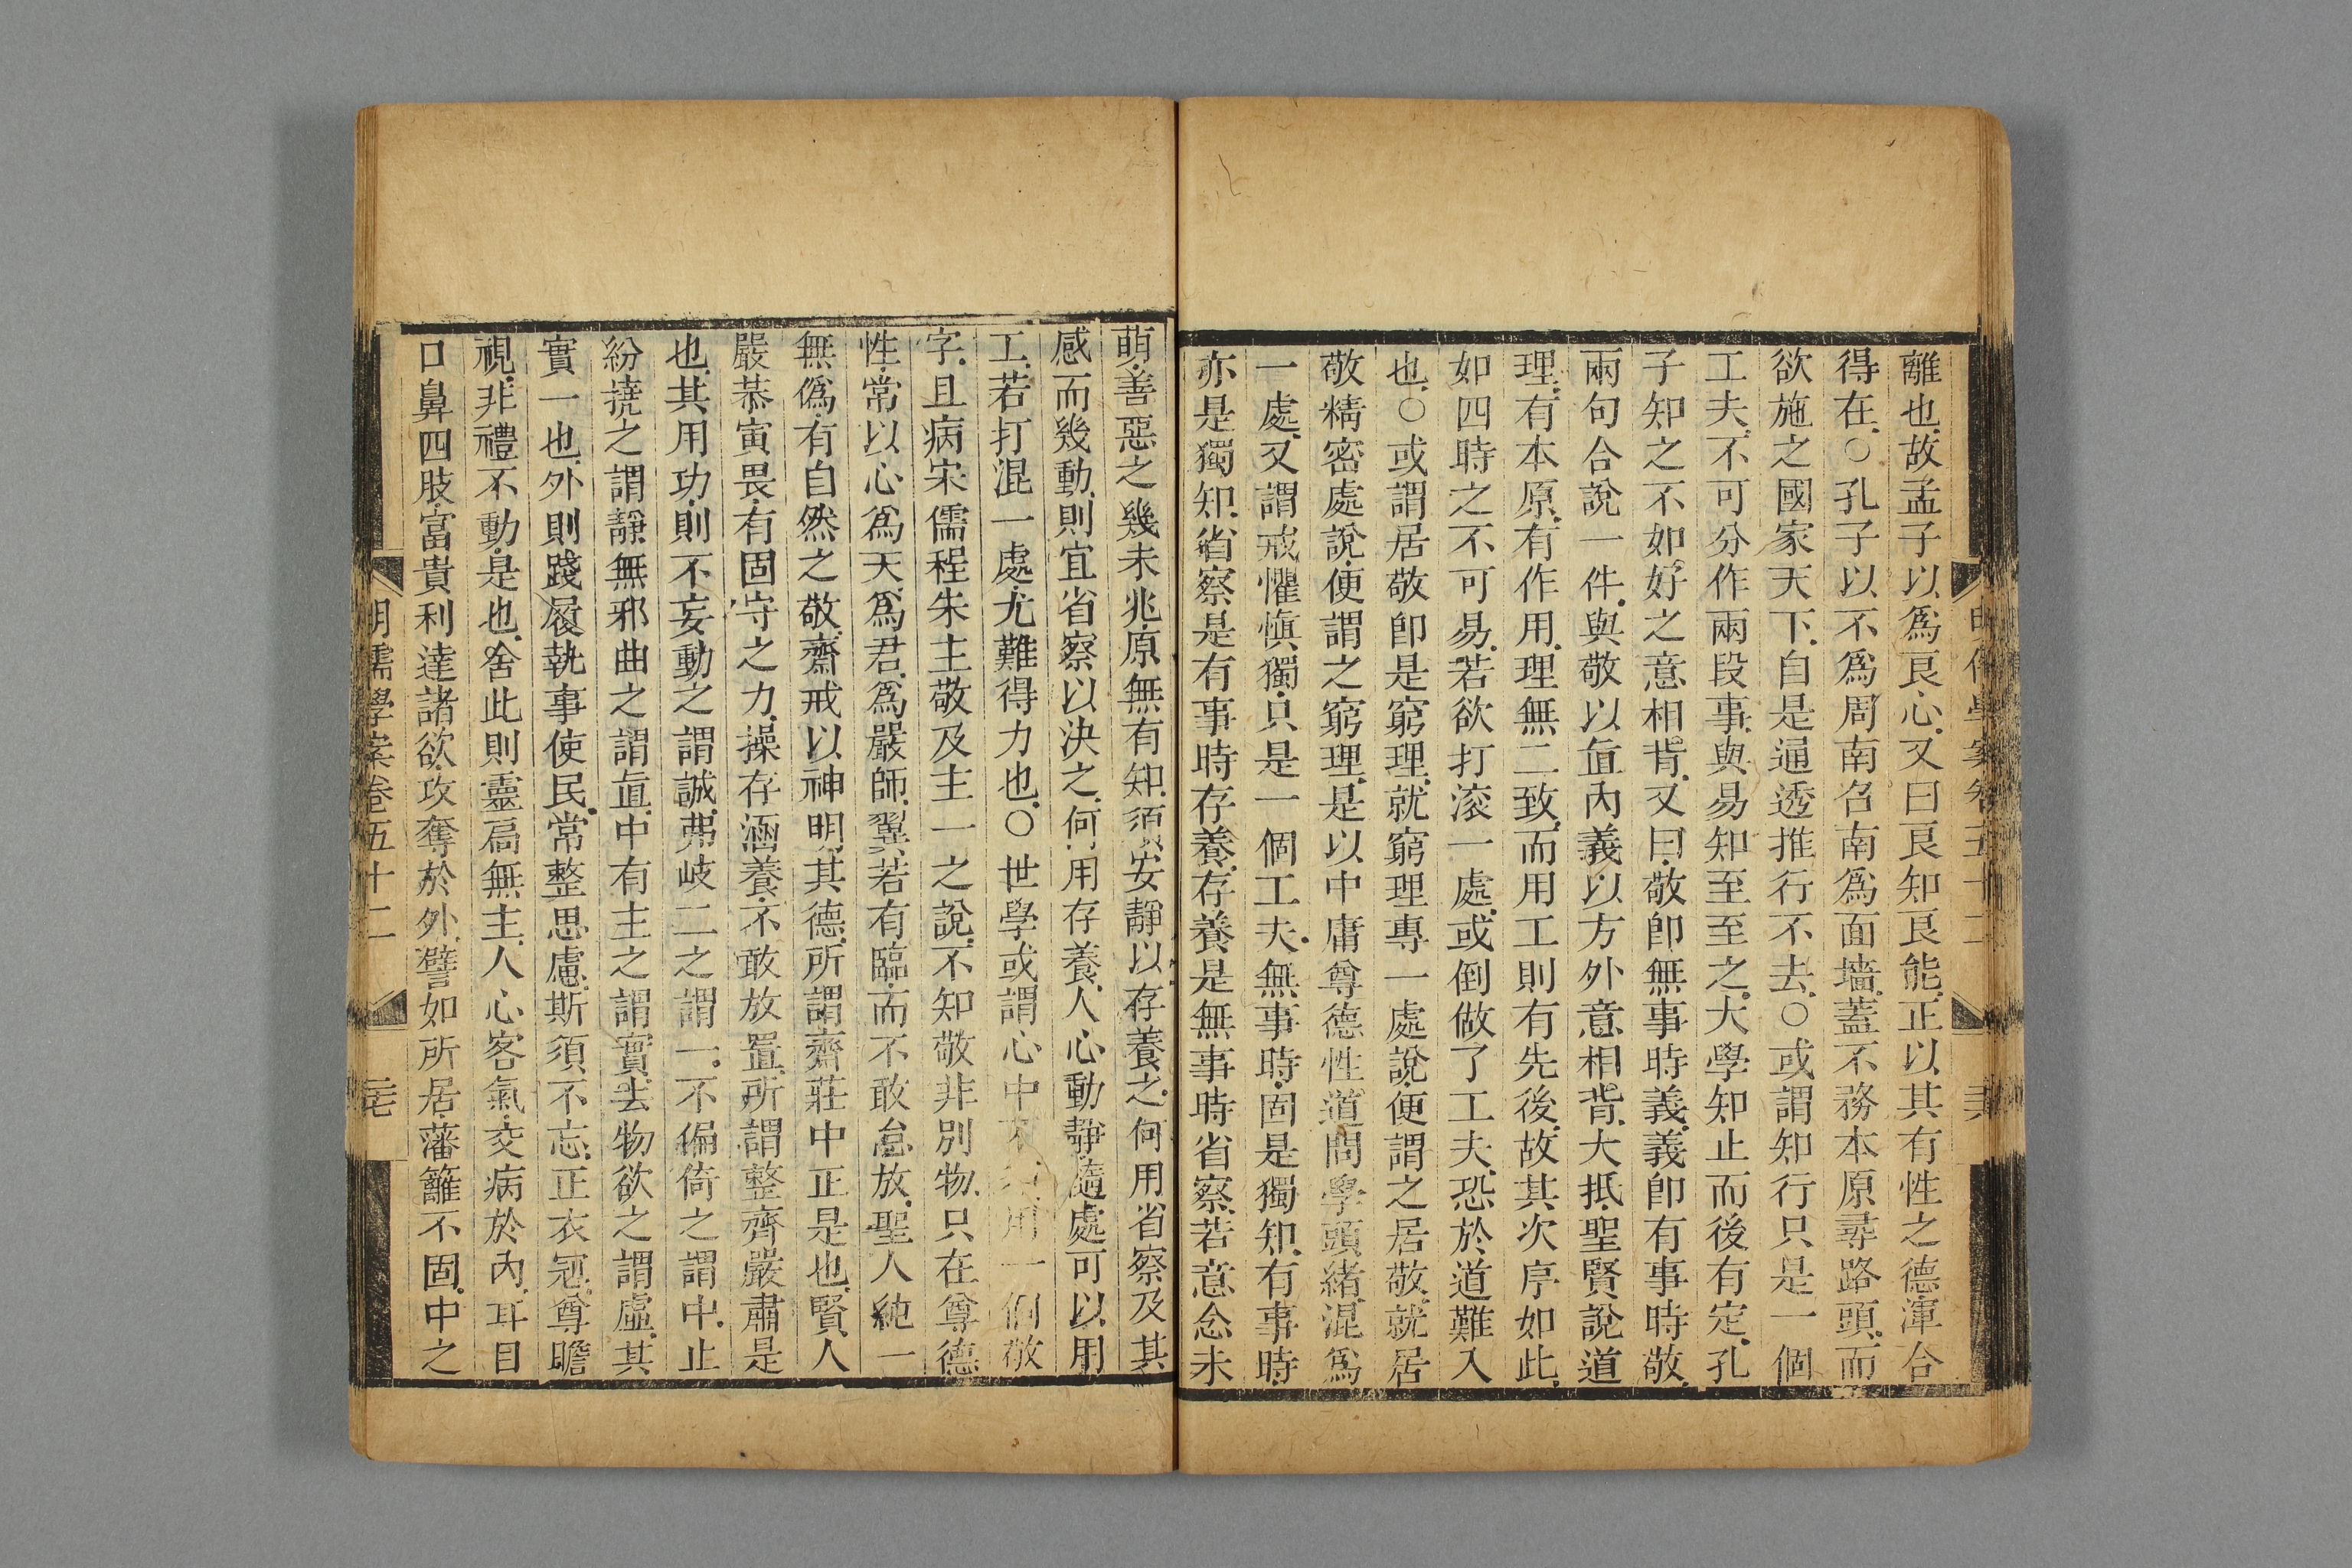 離也.故孟子以爲良心.又曰良知良能.正以其有性之德.渾合
得在.○孔子以不爲周南召南爲面墻.蓋不務本原尋路頭.而
欲施之國家天下.自是通透推行不去.○或謂知行只是一個
工夫.不可分作兩段事.與易知至至之.大學知止而後有定.孔
子知之不如好之意相背.又曰.敬卽無事時義.義卽有事時敬.
兩句合說一件.與敬以直內義以方外意相背.大抵聖賢說道
理.有本原.有作用.理無二致.而用工則有先後.故其次序如此.
如四時之不可易.若欲打滚一處.或倒做了工夫.恐於道難入
也.○或謂居敬卽是窮理.就窮理專一處說.便謂之居敬.就居
敬精密處說.便謂之窮理.是以中庸尊德性道問學頭緒混爲
一處.又謂戒懼愼獨.只是一個工夫.無事時.固是獨知.有事時.
亦是獨知.省察是有事時存養.存養是無事時省察.若意念未
萌.善惡之幾未兆.原無有知.須安靜以存養之.何用省察.及其
感而幾動.則宜省察以決之.何用存養.人心動靜.隨處可以用
工.若打混一處.尤難得力也.○世學或謂心中不須用一個敬
字.且病宋儒程朱主敬及主一之說.不知敬非別物.只在尊德
性.常以心爲天.爲君.爲嚴師.翼若有臨.而不敢怠放.聖人純一
無僞.有自然之敬.齋戒以神明其德.所謂齊莊中正是也.賢人
嚴恭寅畏.有固守之力.操存涵養.不敢放置.所謂整齊嚴肅是
也.其用功.則不妄動之謂誠.弗岐二之謂一.不偏倚之謂中.止
紛撓之謂靜.無邪曲之謂直.中有主之謂實.去物欲之謂虛.其
實一也.外則踐履執事使民.常整思慮.斯須不忘.正衣冠.尊瞻
視.非禮不動.是也.舍此則靈扃無主.人心客氣.交病於內.耳目
口鼻四肢.富貴利達諸欲.攻奪於外.譬如所居藩籬不固.中之
明儒學案卷五十二